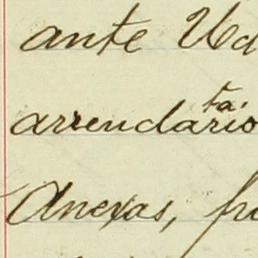 ante Ud
ta.
arrendatario
Anexas, fr